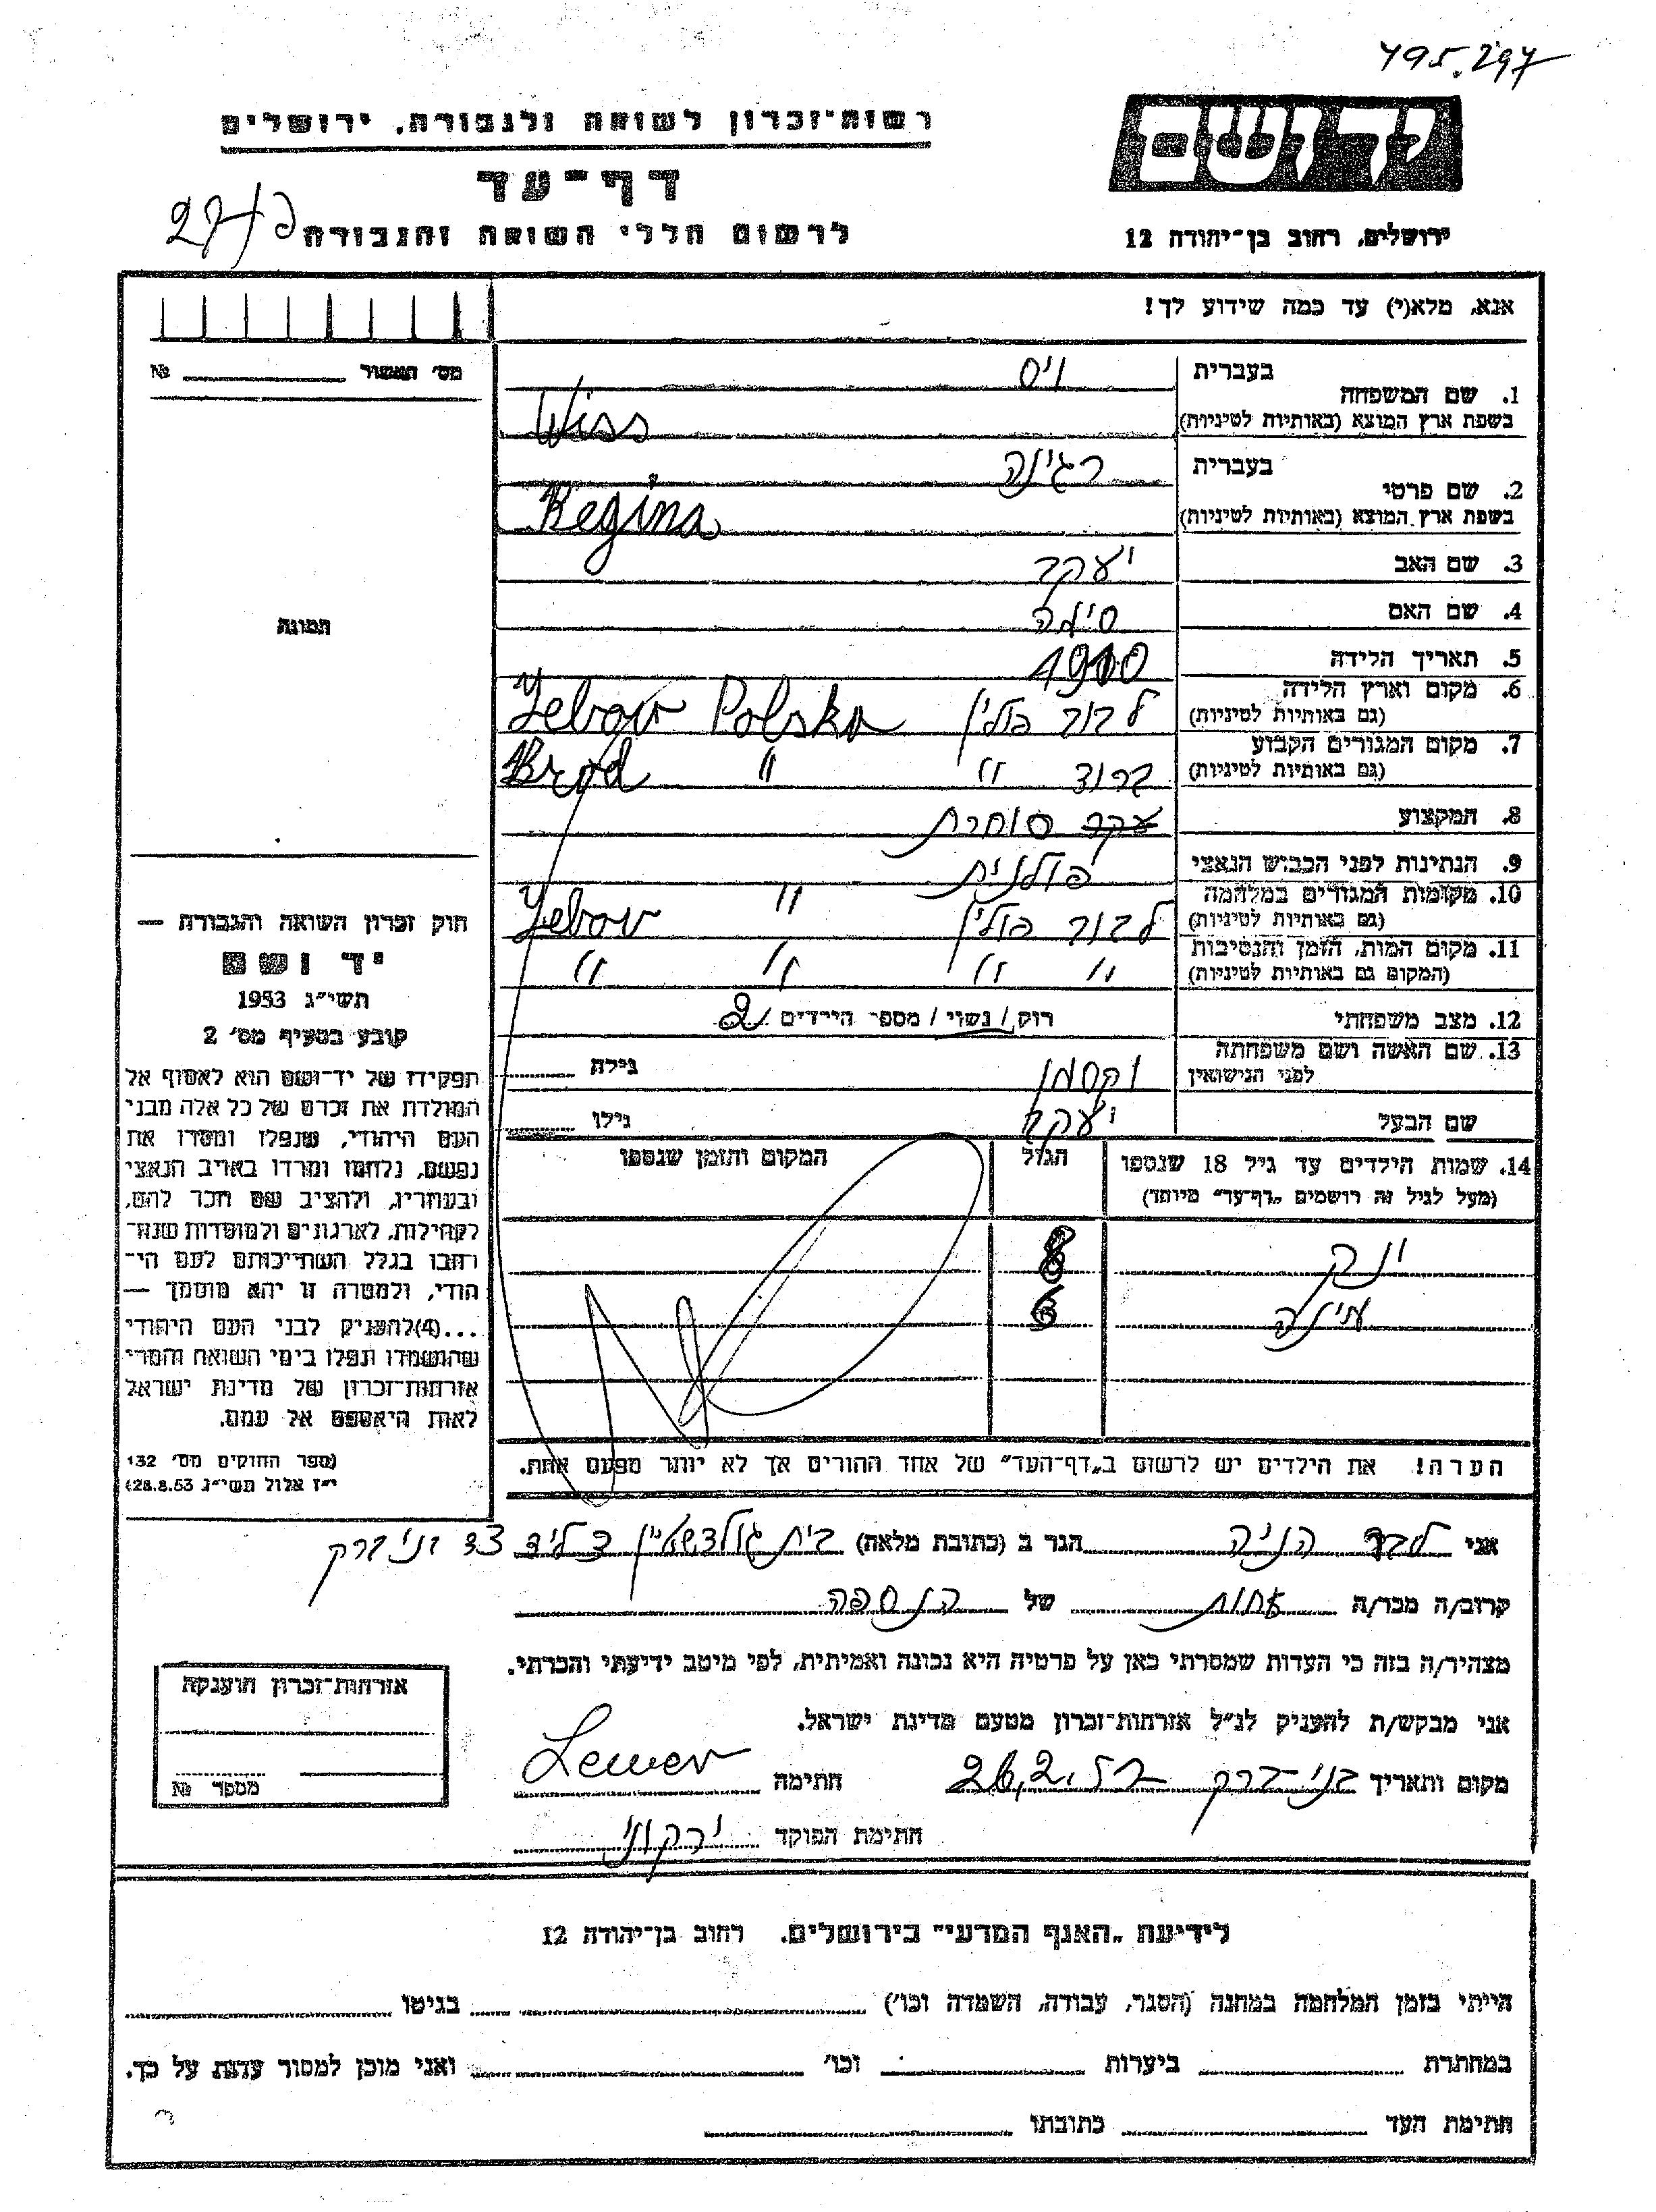 495.297
יד ושם
רשות-זכרון לשואה ולגבורה, ירושלים
דף-עד
לרשום חללי השואה והגבורה
ירושלים, רחוב בן-יהודה 12
אנא, מלא(י) עד כמה שידוע לך!
מס׳ המשור № 
1. שם המשפחה בעברית ויס
בשפת ארץ המוצא (באותיות לטיניות) Wiss
2. שם פרטי בעברית רגינה
בשפת ארץ המוצא (באותיות לטיניות) Regina
3. שם האב יעקב
4. שם האם סימה
5. תאריך הלידה 1910
6. מקום וארץ הלידה (גם באותיות לטיניות) לבוב פולין Lebow Polska
7. מקום המגורים הקבוע (גם באותיות לטיניות) ברוד " Brod "
8. המקצוע סוחרת
9. הנתינות לפני הכבוש הנאצי פולנית
10. מקומות המגורים במלחמה (גם באותיות לטיניות) לבוב פולין Lebow "
11. מקום המות, הזמן והנסיבות (המקום גם באותיות לטיניות) " " " "
12. מצב משפחתי רוק / נשוי / מספר הילדים 2
13. שם האשה ושם משפחתה לפני הנישואין וקסמן גילה
שם הבעל יעקב גילו
14. שמות הילדים עד גיל 18 שנספו הגיל המקום והזמן שנספו
(מעל לגיל זה רושמים „דף-עד" מיוחד)
ינק 8
מינה 6
הערה! את הילדים יש לרשום ב„דף-העד" של אחד ההורים אך לא יותר מפעם אחת.
תמונה
חוק זכרון השואה והגבורה —
יד ושם
תשי״ג 1953
קובע בסעיף מס׳ 2
תפקידו של יד-ושם הוא לאסוף אל
המולדת את זכרם של כל אלה מבני
העם היהודי, שנפלו ומסרו את
נפשם, נלחמו ומרדו באויב הנאצי
ובעוזריו, ולהציב שם וזכר להם,
לקהילות, לארגונים ולמוסדות שנח-
רבו בגלל השתייכותם לעם הי-
הודי, ולמטרה זו יהא מוסמך —
...(4)להעניק לבני העם היהודי
שהושמדו ונפלו בימי השואה והמרי
אזרחות-זכרון של מדינת ישראל
לאות היאספם אל עמם.
(ספר החוקים מס׳ 132
י״ז אלול תשי״ג 28.8.53)
אני לבר הניה הגר ב (כתובת מלאה) בית גולדשטיין בני ברק
קרוב/ה מכר/ה אחות של הנספה
מצהיר/ה בזה כי העדות שמסרתי כאן על פרטיה היא נכונה ואמיתית, לפי מיטב ידיעתי והכרתי.
אני מבקש/ת להעניק לנ״ל אזרחות-זכרון מטעם מדינת ישראל.
מקום ותאריך בני-ברק 26.2.57 חתימה Lewer
חתימת הפוקד ירקוני
אזרחות-זכרון הוענקה
מספר №
לידיעת „האגף המדעי" בירושלים, רחוב בן-יהודה 12
הייתי בזמן המלחמה במחנה (הסגר, עבודה, השמדה וכו׳) בגיטו
במחתרת ביערות וכו׳ ואני מוכן למסור עדות על כך.
חתימת העד כתובתו